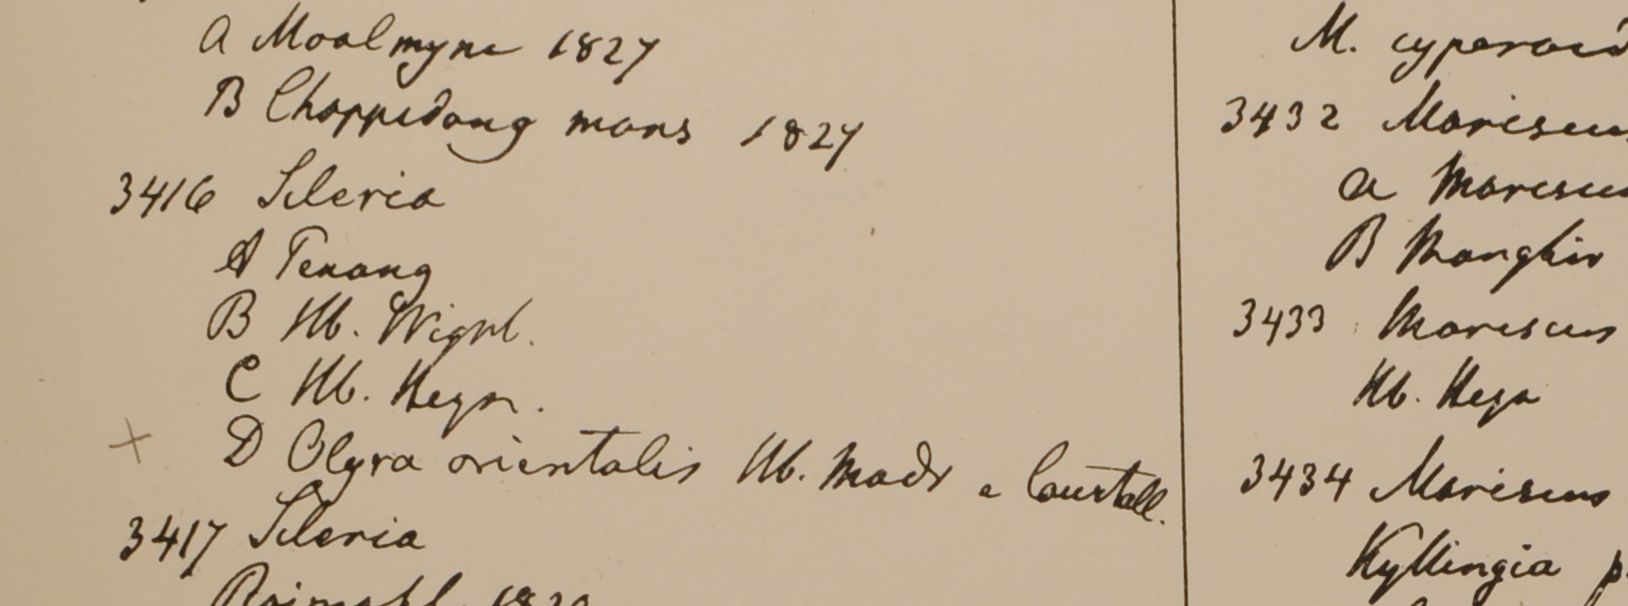 a Moalmyne 1827
B Choppedong mons 1827
3416 Scleria
A Penang
B Hb. Wight.
C Hb. Heyn.
D Olyra orientalis Hb. Madr e Courtall.
3417 Scleria
1829
M. cyperoid
3432 Mariscus
a Mariscu
B Monghir
3433 Mariscus
Hb. Heyn
3434 Mariscus
Kyllingia p